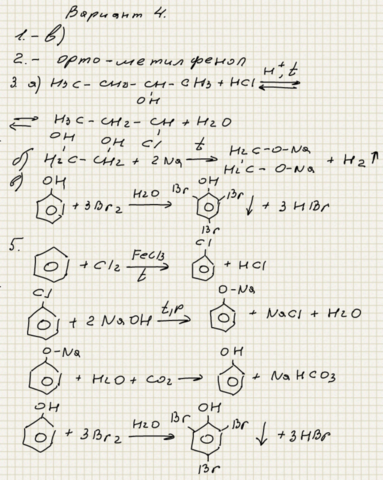 Вариант 4.
1. - в)
2. - орто-метилфенол
3. а) H3C - CH2 - CH - CH3 + HCl H+, t ⇌
OH
⇌ H3C - CH2 - CH + H2O
Cl
OH OH
б) H2C - CH2 + 2Na t→ H2C-O-Na + H2↑
H2C-O-Na
в) OH
+ 3Br2 H2O→ Br OH Br ↓ + 3HBr
Br
5.
+ Cl2 FeCl3 t→ Cl + HCl
Cl
+ 2NaOH t,p→ O-Na + NaCl + H2O
O-Na
+ H2O + CO2 → OH + NaHCO3
OH
+ 3Br2 H2O→ Br OH Br ↓ + 3HBr
Br